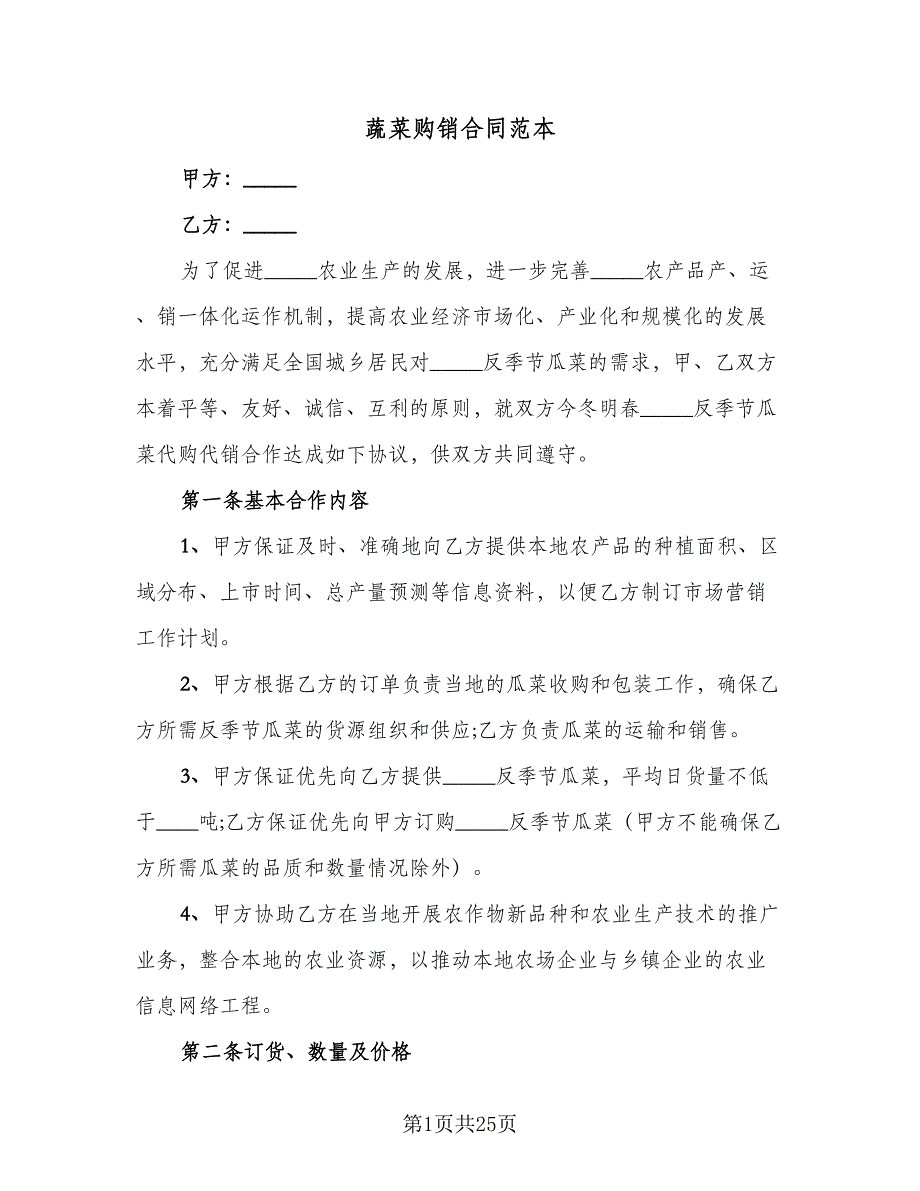 蔬菜购销合同范本
甲方：_____
乙方：_____
为了促进_____农业生产的发展，进一步完善_____农产品产、运
、销一体化运作机制，提高农业经济市场化、产业化和规模化的发展
水平，充分满足全国城乡居民对_____反季节瓜菜的需求，甲、乙双方
本着平等、友好、诚信、互利的原则，就双方今冬明春_____反季节瓜
菜代购代销合作达成如下协议，供双方共同遵守。
第一条基本合作内容
1、甲方保证及时、准确地向乙方提供本地农产品的种植面积、区
域分布、上市时间、总产量预测等信息资料，以便乙方制订市场营销
工作计划。
2、甲方根据乙方的订单负责当地的瓜菜收购和包装工作，确保乙
方所需反季节瓜菜的货源组织和供应;乙方负责瓜菜的运输和销售。
3、甲方保证优先向乙方提供_____反季节瓜菜，平均日货量不低
于____吨;乙方保证优先向甲方订购_____反季节瓜菜（甲方不能确保乙
方所需瓜菜的品质和数量情况除外）。
4、甲方协助乙方在当地开展农作物新品种和农业生产技术的推广
业务，整合本地的农业资源，以推动本地农场企业与乡镇企业的农业
信息网络工程。
第二条订货、数量及价格
第1页共25页